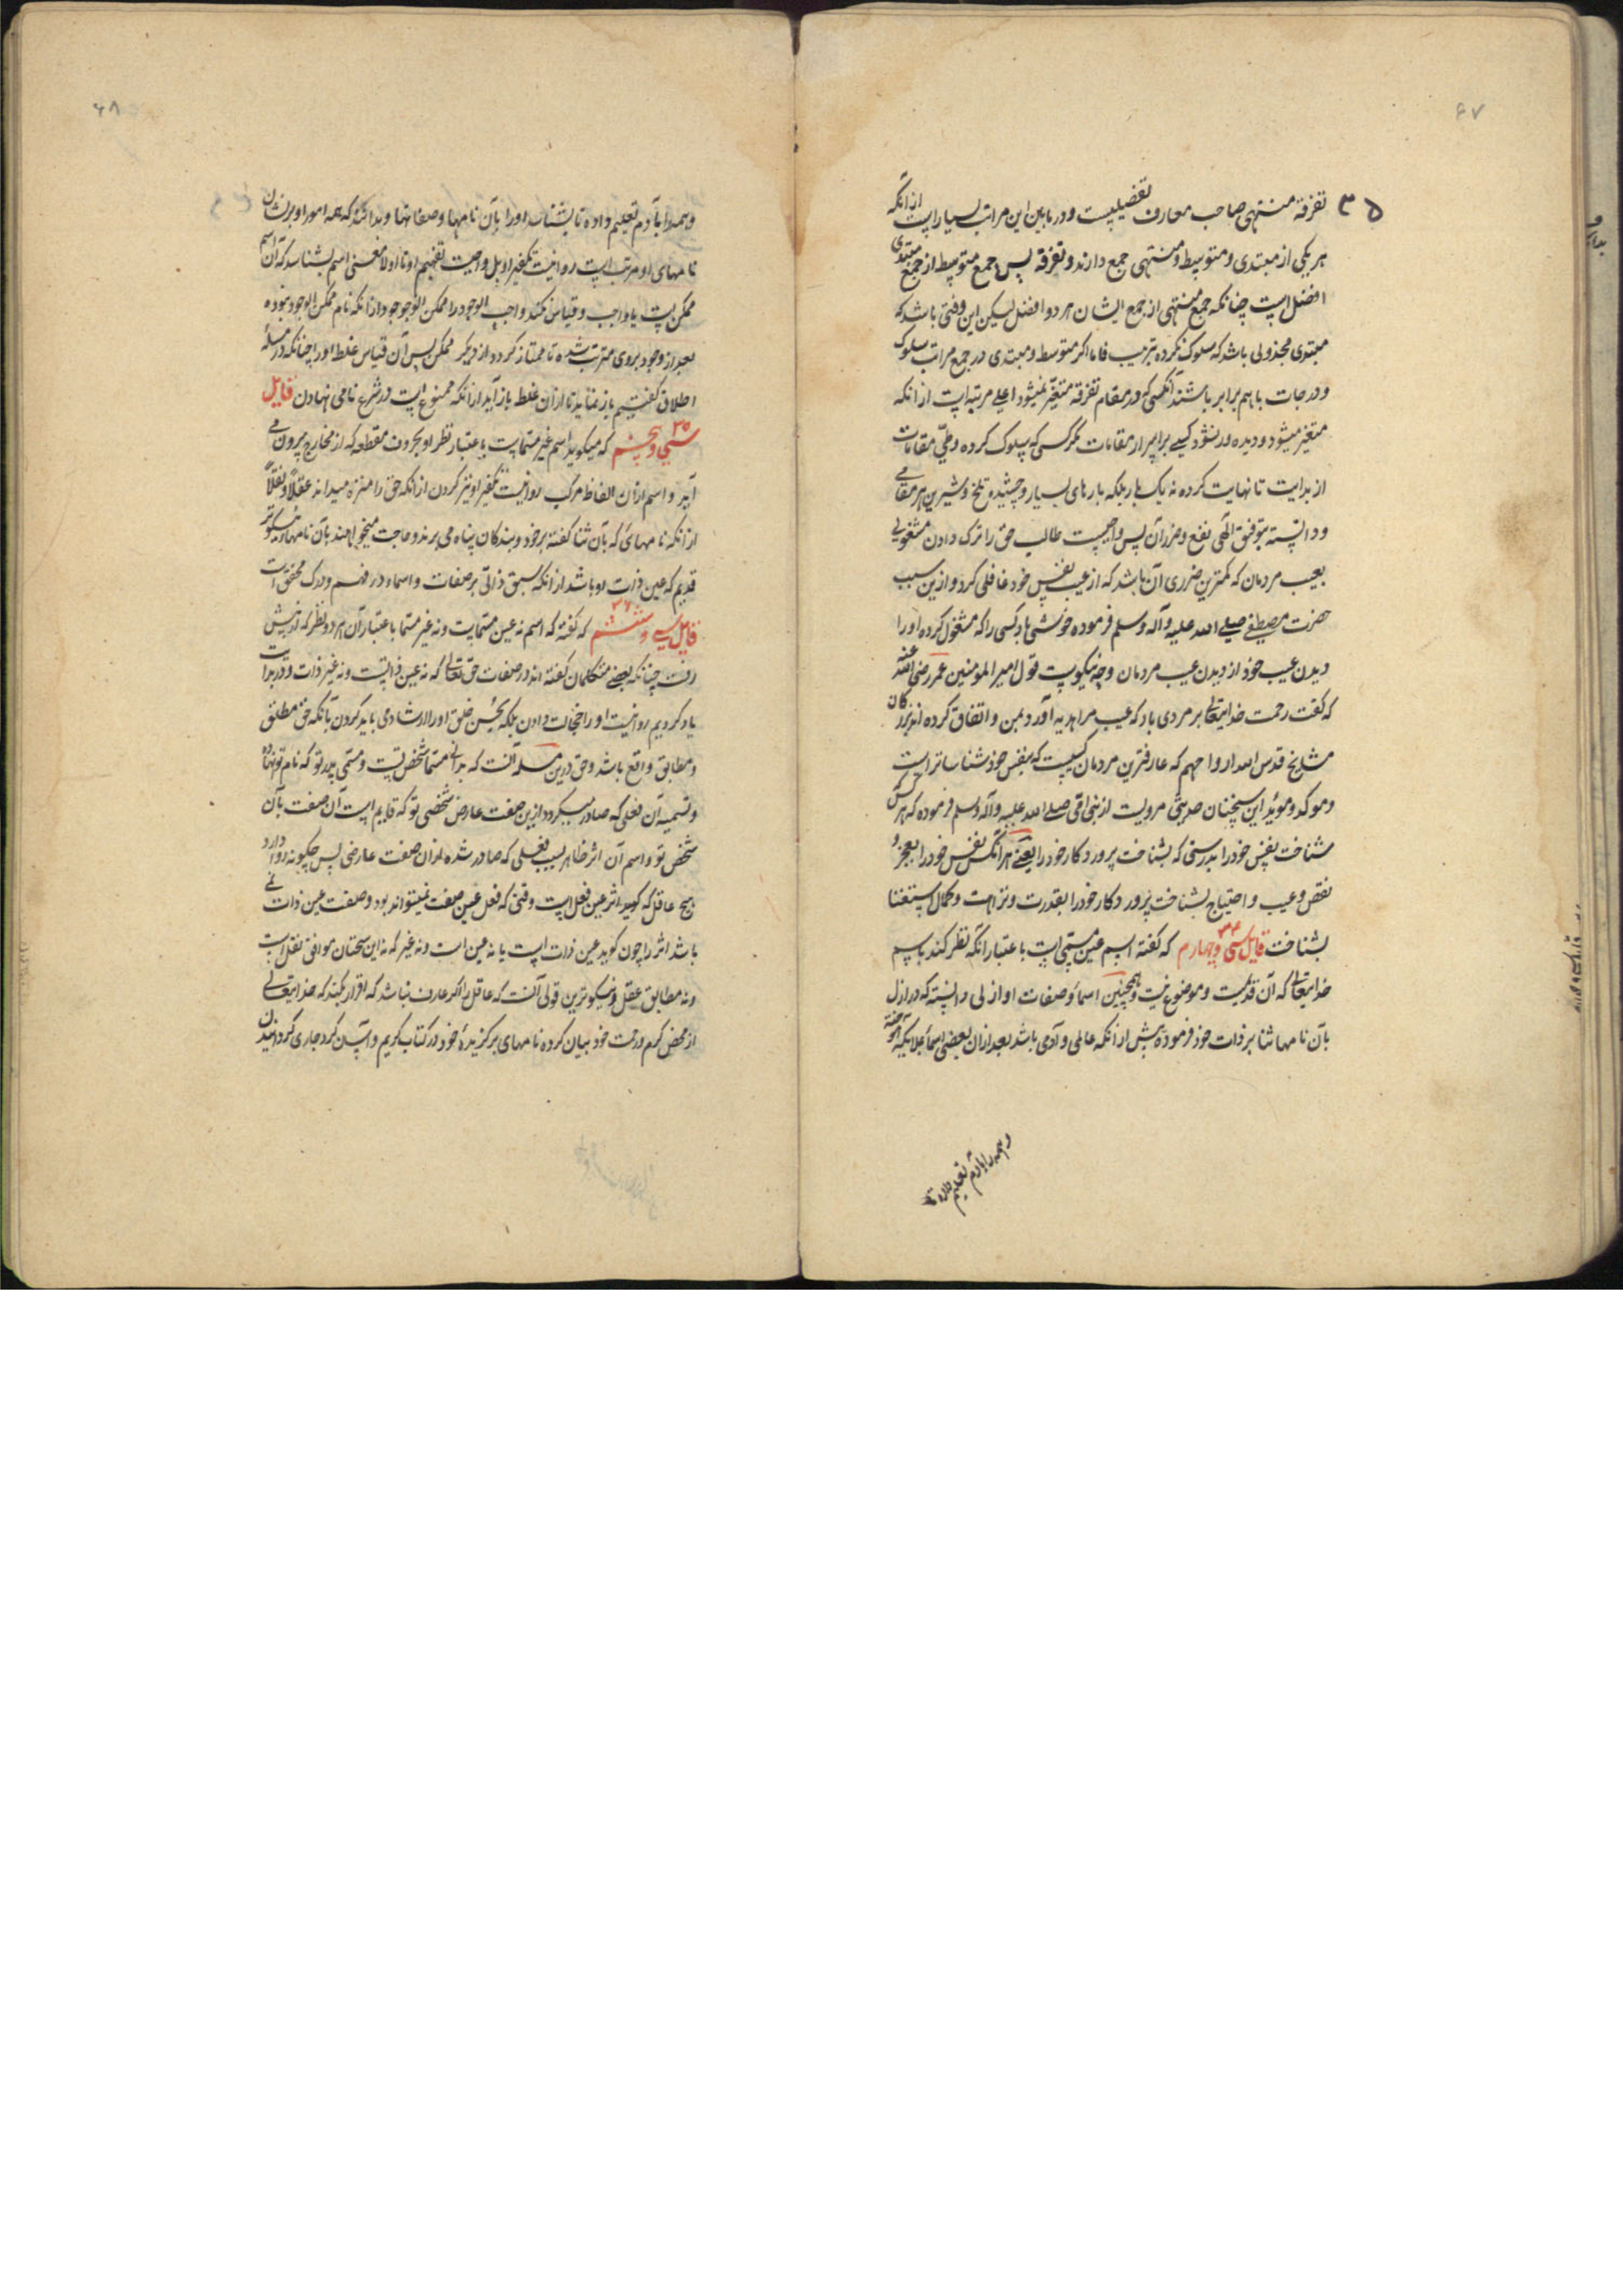 ۶۷
۳۵
تفرقهٔ منتهی صاحب معارف تفضیلیست و در مابین این مراتب بسیار است از آنکه
هر یکی از مبتدی و متوسط و منتهی جمع دارند و تفرقه پس جمع متوسط از جمع مبتدی
افضل است چنانکه جمع منتهی از جمع ایشان هر دو افضل لیکن این وقتی باشد که
مبتدی مجذوبی باشد که سلوک نکرده بترتیب فاما اگر متوسط و مبتدی در جمع مراتب سلوک
و درجات با هم برابر باشند آنکسی که در مقام تفرقه متغیر نمیشود اعلی مرتبه است از آنکه
متغیر میشود و دیده ور نشود کسی برابر از مقامات مگر کسی که سلوک کرده و طی مقامات
از بدایت تا نهایت کرده نه یک بار بلکه بارهای بسیار و چشیده تلخ و شیرین هر مقامی
و دانسته بتوفیق الهی نفع و ضرر آن پس واجبست طالب حق را ترک دادن مشغولی
بعیب مردمان که کمترین ضرری آن باشد که از عیب نفس خود غافل گردد و ازین سبب
حضرت مصطفی صلی الله علیه و آله وسلم فرموده خوشی باد کسی را که مشغول کرده او را
دیدن عیب خود از دیدن عیب مردمان وچه نیکوست قول امیر المومنین عمر رضی الله عنه
که گفت رحمت خدایتعالی بر مردی باد که عیب مرا هدیه آورد بمن و اتفاق کرده اند بزرگان
مشایخ قدس الله ارواحهم که عارفترین مردمان کسیست که بنفس خود شناساتر است
و موکد و مؤید این سخنان حدیثی مرویست از نبی امی صلی الله علیه و آله وسلم فرموده که هر کس
شناخت نفس خود را بدرستی که بشناخت پروردکار خود را یعنی هر آنکس نفس خود را بعجز و
نقص و عیب و احتیاج بشناخت پروردکار خود را بقدرت و نزاهت و کمال استغنا
بشناخت قایل سی و چهارم ۳۴ که گفته اسم عین مسمی است باعتبار آنکه نظر کند باسم
خدایتعالی که آن قدیمست و موضوع نیست و همچنین اسما و صفات او ازلی دانسته که در ازل
بآن نامها ثنا بر ذات خود فرموده پیش از آنکه عالمی و آدمی باشد بعد از آن بعضی اسما بملایکه آموخته
و همه را بآدم تعلیم داده تا
۶۸
و همه را بآدم تعلیم داده تا بشناسد او را بآن نامها و صفاتها و بدانند که همه امور او بر نشان
نامهای او مرتب است روا نیست تکفیر او بل واجبست تفهیم او تا اولا معنی اسم بشناسد که آن اسم
ممکن است یا واجب و قیاس نکند واجب الوجود را ممکن الوجود از آنکه نام ممکن الوجود نبوده
بعد از وجود بروی مترتب شده تا ممتاز گردد از دیگر ممکن پس آن قیاس غلط او را چنانکه در مسله
اطلاق گفتیم باز نمائید تا از آن غلط باز آید از آنکه ممنوع است در شرع نامی نهادن قایل
سی و پنجم ۳۵ که میگوید اسم غیر مسماست باعتبار نظر او بحروف مقطعه که از مخارج بیرون می
آید و اسم از آن الفاظ مرکب روا نیست تکفیر او نیز کردن از آنکه حق را منزه میداند عقلاً و نقلاً
از آنکه نامهائی که بآن ثنا گفته بر خود و بندکان پناه می برند و حاجت میخواهند بآن نامها
قدیم که عین ذات او باشد از آنکه سبق ذاتی بر صفات و اسماء در فهم و درک محقق است
قایل سی و ششم ۳۶ که گفته که اسم نه عین مسمایست و نه غیر مسما باعتبار آن هر دو نظر که از پیش
رفت چنانکه بعضی متکلمان گفته اند در صفات حق تعالی که نه عین ذاتست و نه غیر ذات و در بدایت
یاد کردیم روا نیست او را خجالت دادن بلکه بحسن خلق او را ارشاد می باید کردن بآنکه حق مطلق
و مطابق واقع باشد و حق درین مسله آنست که بدانی مسما شخص تست و مسمی پدر تو که نام تو نهاده
و تسمیه آن فعلی که صادر میگردد ازین صفت عارض شخصی تو که قایم است آن صفت بآن
شخص تو و اسم آن اثر ظاهر بسبب فعلی که صادر شده از آن صفت عارضی پس چگونه روا دارد
هیچ عاقل که گوید اثر عین فعل است وقتی که فعل عین صفت نمیتواند بود و صفت عین ذات نی
باشد اثر را چون گوید عین ذات است یا نه عین است و نه غیر که نه این سخنان موافق نقل است
و نه مطابق عقل و نیکوترین قولی آنست که عاقل را اگر عارف نباشد که اقرار بکند که خدایتعالی
از محض کرم و رحمت خود بیان کرده نامهای برگزیدهٔ خود در کتاب کریم و آسان کرد جاری گردانیدن